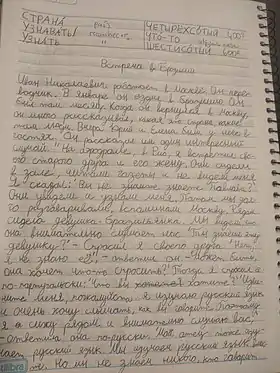 СТРАНА
УЗНАВАТЬ/
УЗНАТЬ
ЧЕТЫРЕХСОТЫЙ
ЧТО-ТО
ШЕСТИСОТЫЙ
Встреча в Бразилии
Иван Николаевич работает в Москве. Он пере-
водчик. В январе он ездил в Бразилию. Он
был там месяц. Когда он вернулся в Москву,
он много рассказывал, какая это страна, какие
там люди. Вчера Юрий и Елена были у него в
гостях. Он рассказал им один интересный
случай. "Но аэродроме, в Рио, я встретил сво-
его старого друга и его жену. Они сидели
в зале, читали газеты и не видели меня
Я сказал: "Вы не знаете, знаете Павлова?"
Они увидели и узнали меня. Потом мы дол-
го разговаривали, вспоминали Москву. Рядом
сидела девушка-бразильянка. Мы видели, что
она внимательно слушает нас "Ты знаешь эту
девушку?" - спросил я своего друга. "Нет,
я не знаю её", - ответил он. - Может быть,
она хочет что-то спросить? Тогда я спросил её
по-португальски: "Что вы хотите?" "Изви-
ните меня, пожалуйста. Я изучаю русский язык
и очень хочу слышать, как вы говорите. Поэтому
я сижу рядом и внимательно слушаю вас",
- ответила она по-русски. Мой отец тоже изу-
чает русский язык. Мы изучаем русский язык
Но мы не знаем никого, кто говорит